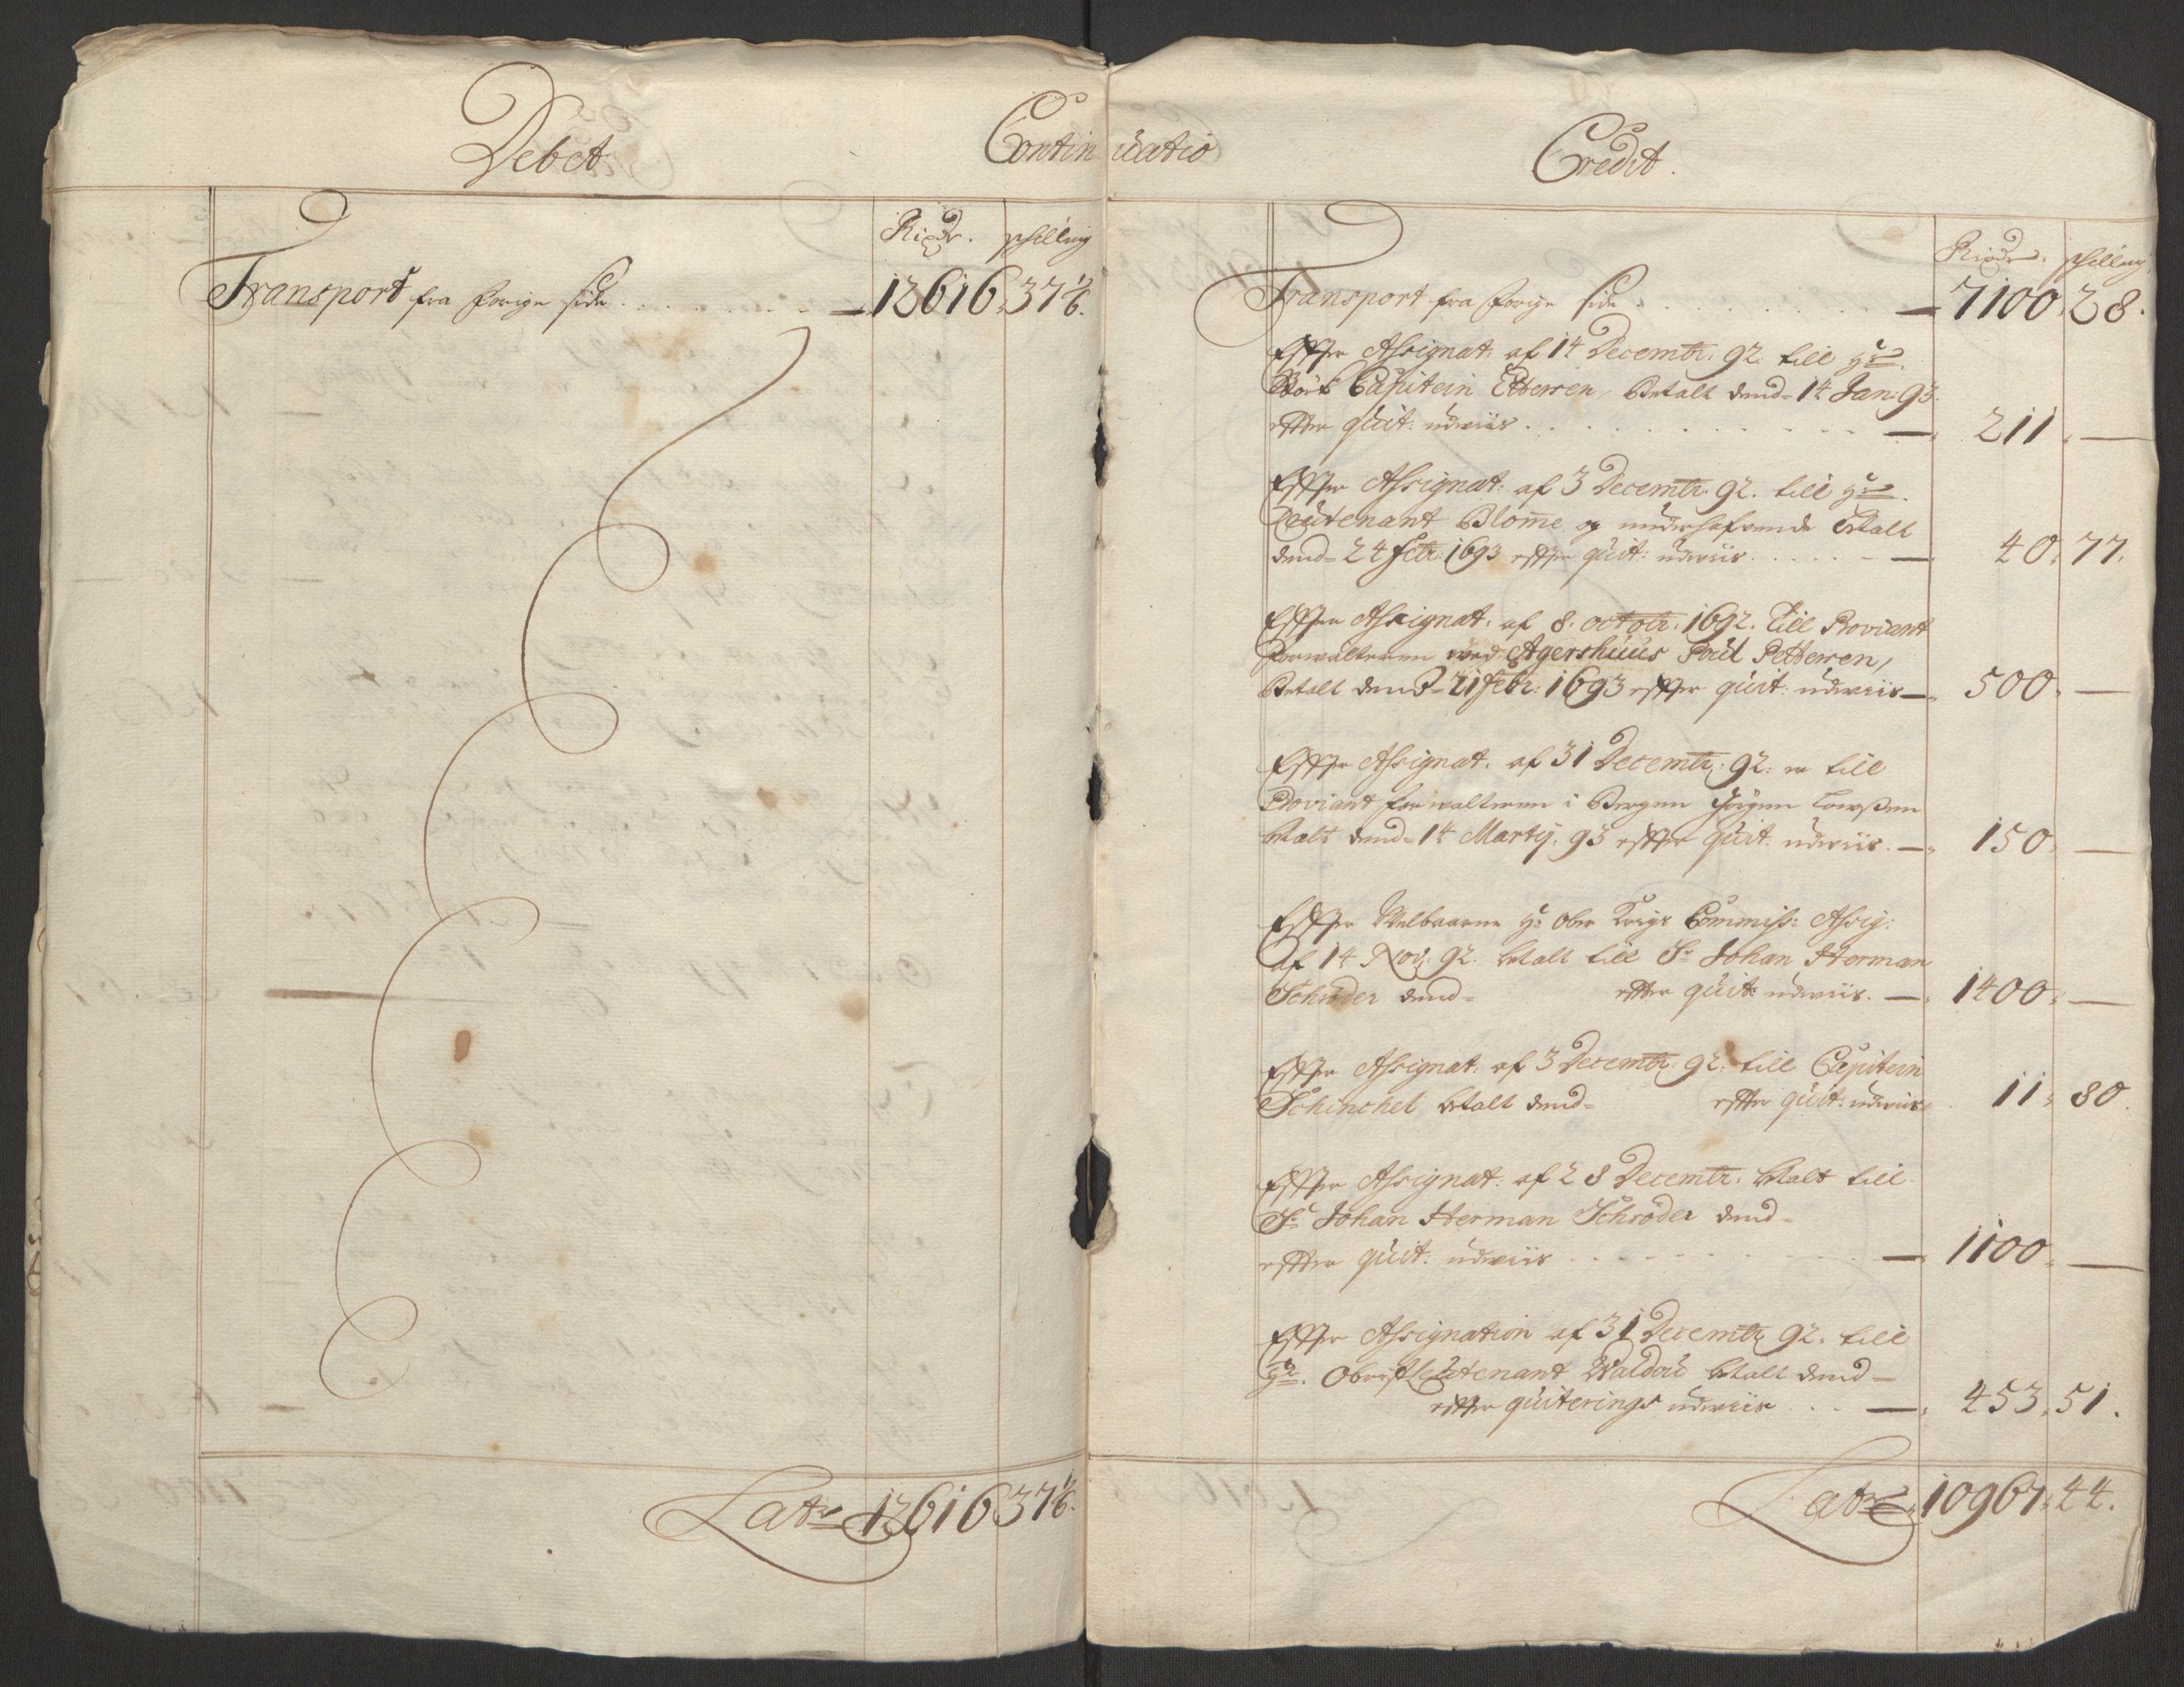 Debet
Continuatio
Credit.
Rixdr. schilling
Transport fra forige side . . . . . . . . — 12616 37 1/6.
Latr. 12616 37 1/6.
Rixdr. schilling
Transport fra forige side . . . . . . . — 7100. 28.
Efter Assignat: af 14 Decembr. 92. till Hr.
Capitein betalt dend= 14 Jan: 93.
efter quit: udwiis . . . . . . . — 211. —
Efter Assignat: af 3 Decembr. 92. till Hr.
Leutenant Blome og betalt
dend= 24 Febr: 1693 efter quit: udwiis . . . . . — 40. 77.
Efter Assignat: af 8. octobr: 1692. till Proviant
Forwalteren wed Agershuus Poul Pettersen,
Betalt dend= 21 Febr: 1693 efter quit: udwiis — 500. —
Efter Assignat. af 31 Decembr: 92: till
Proviant forwalteren i Bergen Jörgen
betalt dend= 14 Martij. 93 efter quit: udwiis. — 150. —
Efter Welbaarne Hr: Ober Krigs Commiss: Assig:
af 14 Nov: 92. betalt till Sr. Johan Herman
Schröder dend= efter quit: udwiis. — 1400. —
Efter Assignat: af 3 Decembr. 92. till Capitein
Schinchel betalt dend= efter quit: udwiis 11. 80.
Efter Assignat: af 28 Decembr. betalt till
Sr. Johan Herman Schröder dend=
efter quit: udwiis . . . . . . . — 1100. —
Efter Assignation af 31 Decembr 92. till
Hr. Obrist Leutenant betalt dend=
efter quiterings udwiis . . — 453. 51.
Latr. 10967. 44.